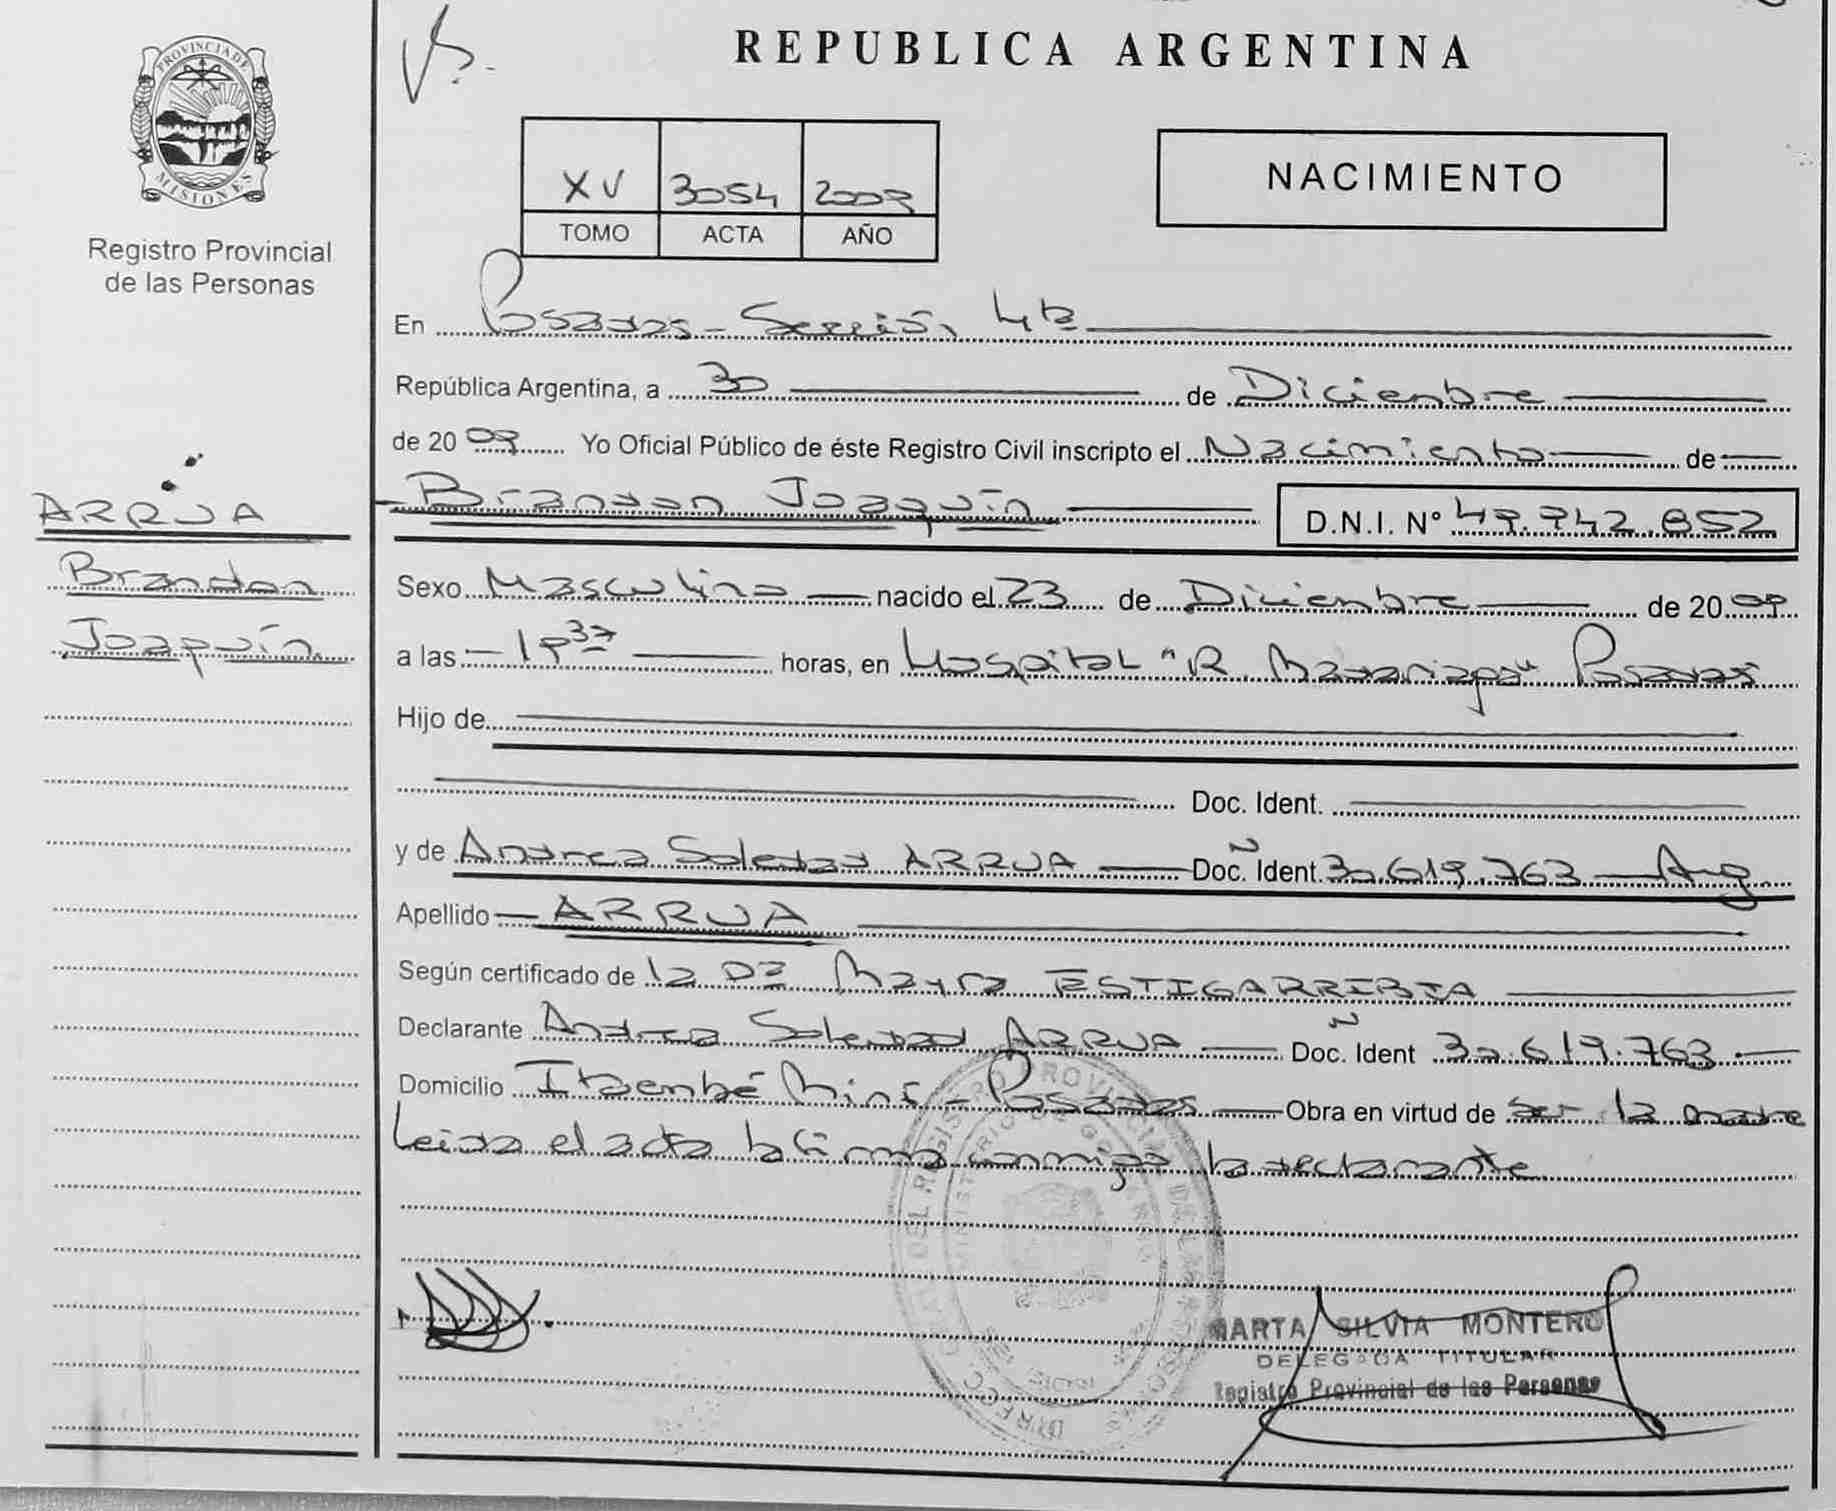 PROVINCIA DE
MISIONES
Registro Provincial
de las Personas
ARRUA
Brandon
Joaquín
REPUBLICA ARGENTINA
XV 3054 2009
TOMO ACTA AÑO
NACIMIENTO
En Posadas - Sección 4ta
República Argentina, a 30 de Diciembre
de 2009 Yo Oficial Público de éste Registro Civil inscripto el Nacimiento de
Brandon Joaquín D.N.I. N° 49.942.852
Sexo Masculino nacido el 23 de Diciembre de 2009
a las horas, en Hospital "R. Madariaga" Posadas
Hijo de
Doc. Ident.
y de Andrea Soledad ARRUA Doc. Ident. 30.619.763 Arg.
Apellido ARRUA
Según certificado de la Dra Mayra ESTIGARRIBIA
Declarante Andrea Soledad ARRUA Doc. Ident 30.619.763
Domicilio Itaembé Miní - Posadas Obra en virtud de ser la madre
Leida el acta la firma conmigo la declarante
MARTA SILVIA MONTERO
DELEGADA TITULAR
Registro Provincial de las Personas